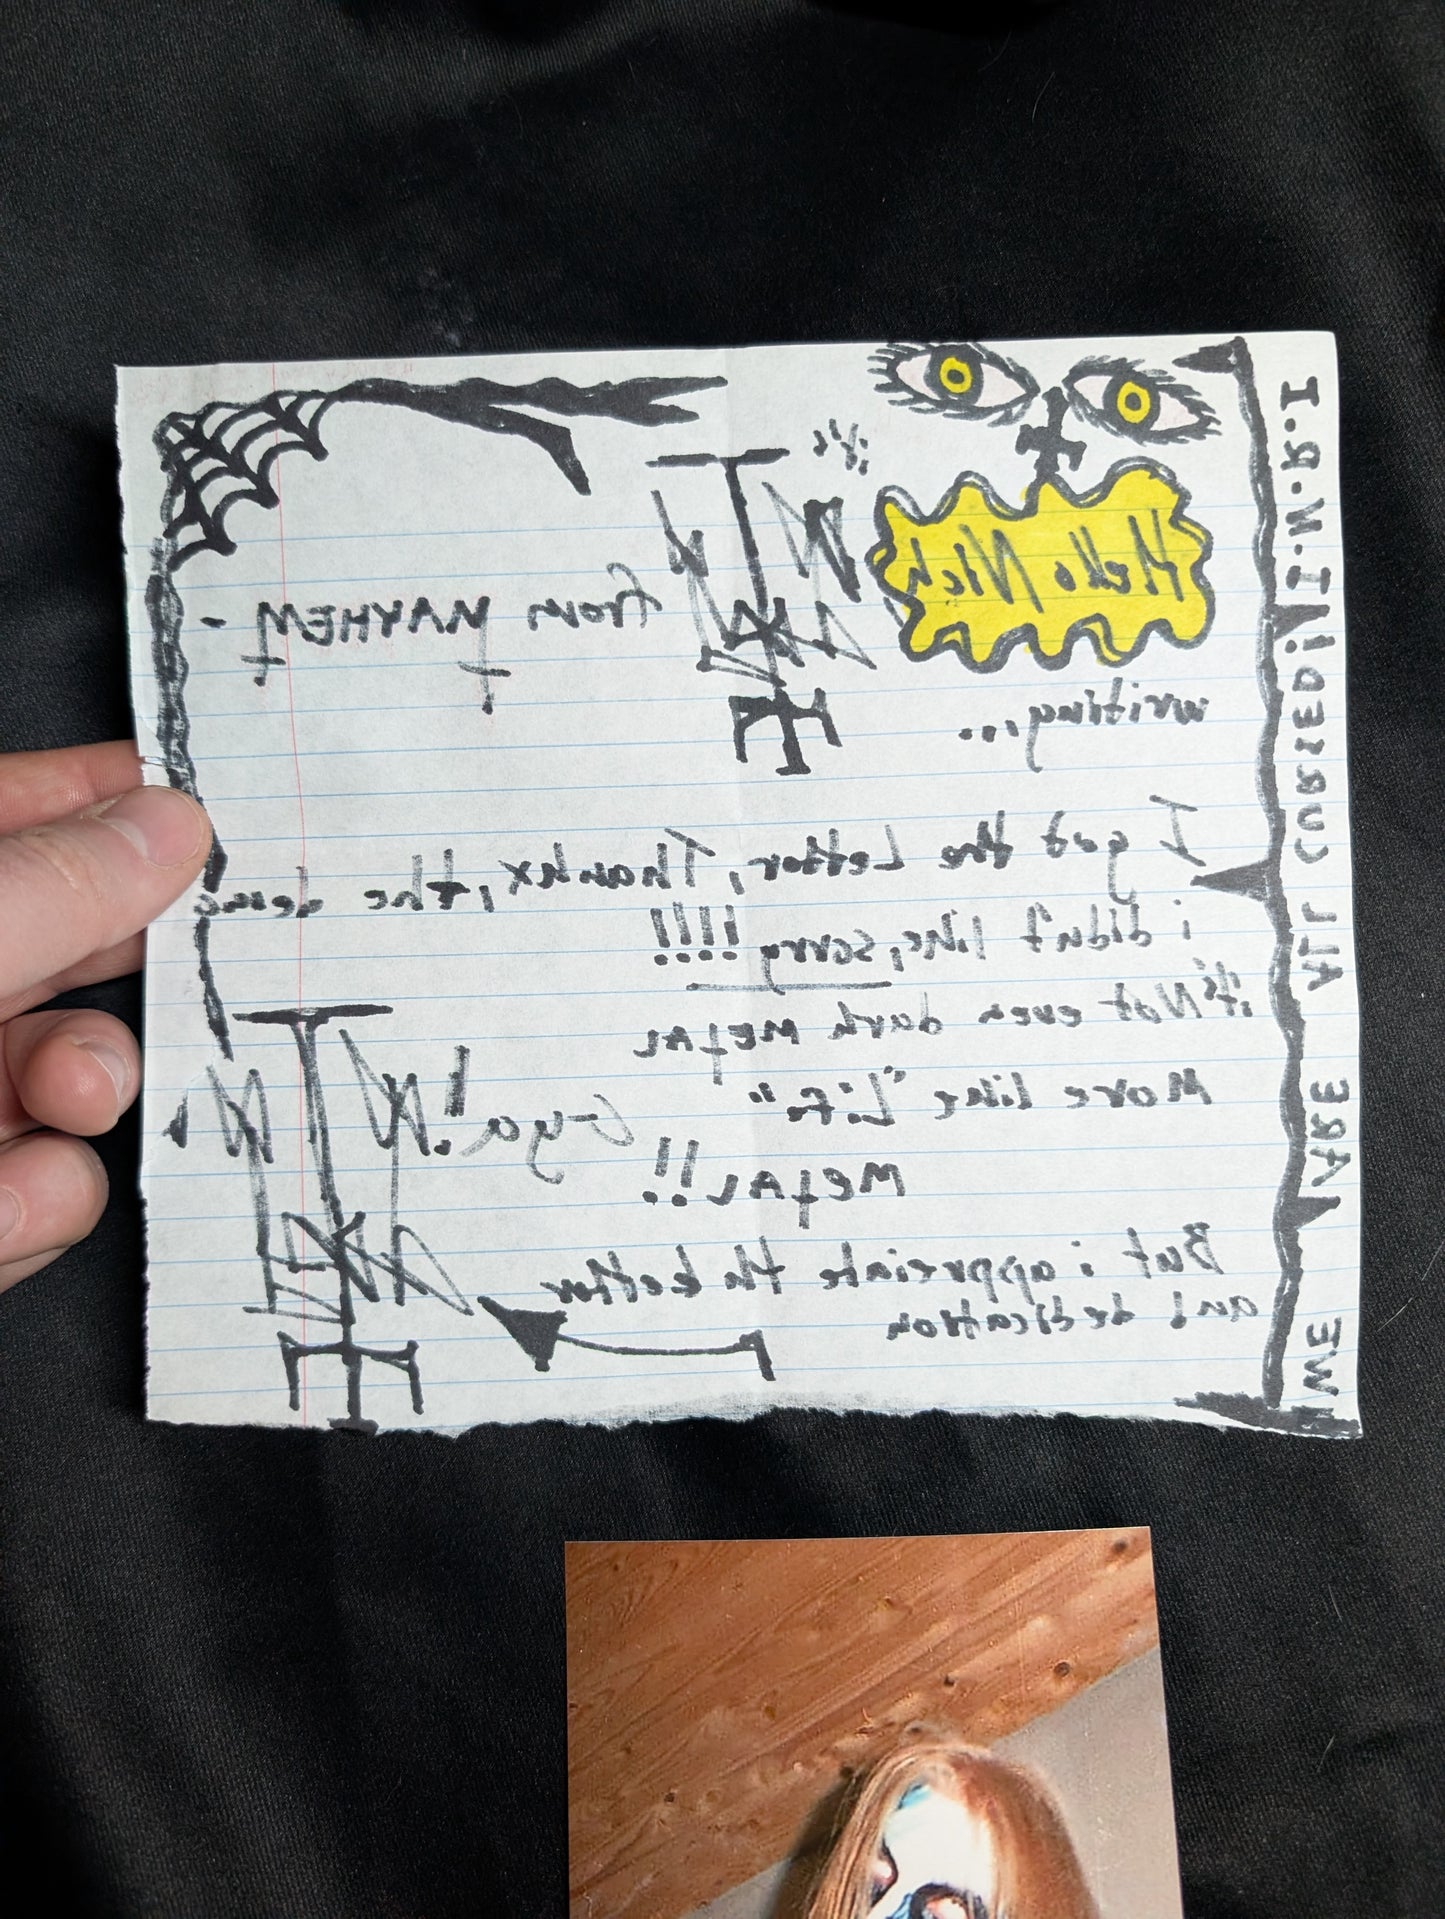 Hello Nick,
it's
from MAYHEM -
writing...
I got the Letter, Thankx, the demo
i didn't like, sorry!!!!
it's Not even dark METAL
More like "Life"
METAL!!
C-ya!!
But i appreciate the Letter
and dedication
WE ARE ALL CURSED! I.N.R.I